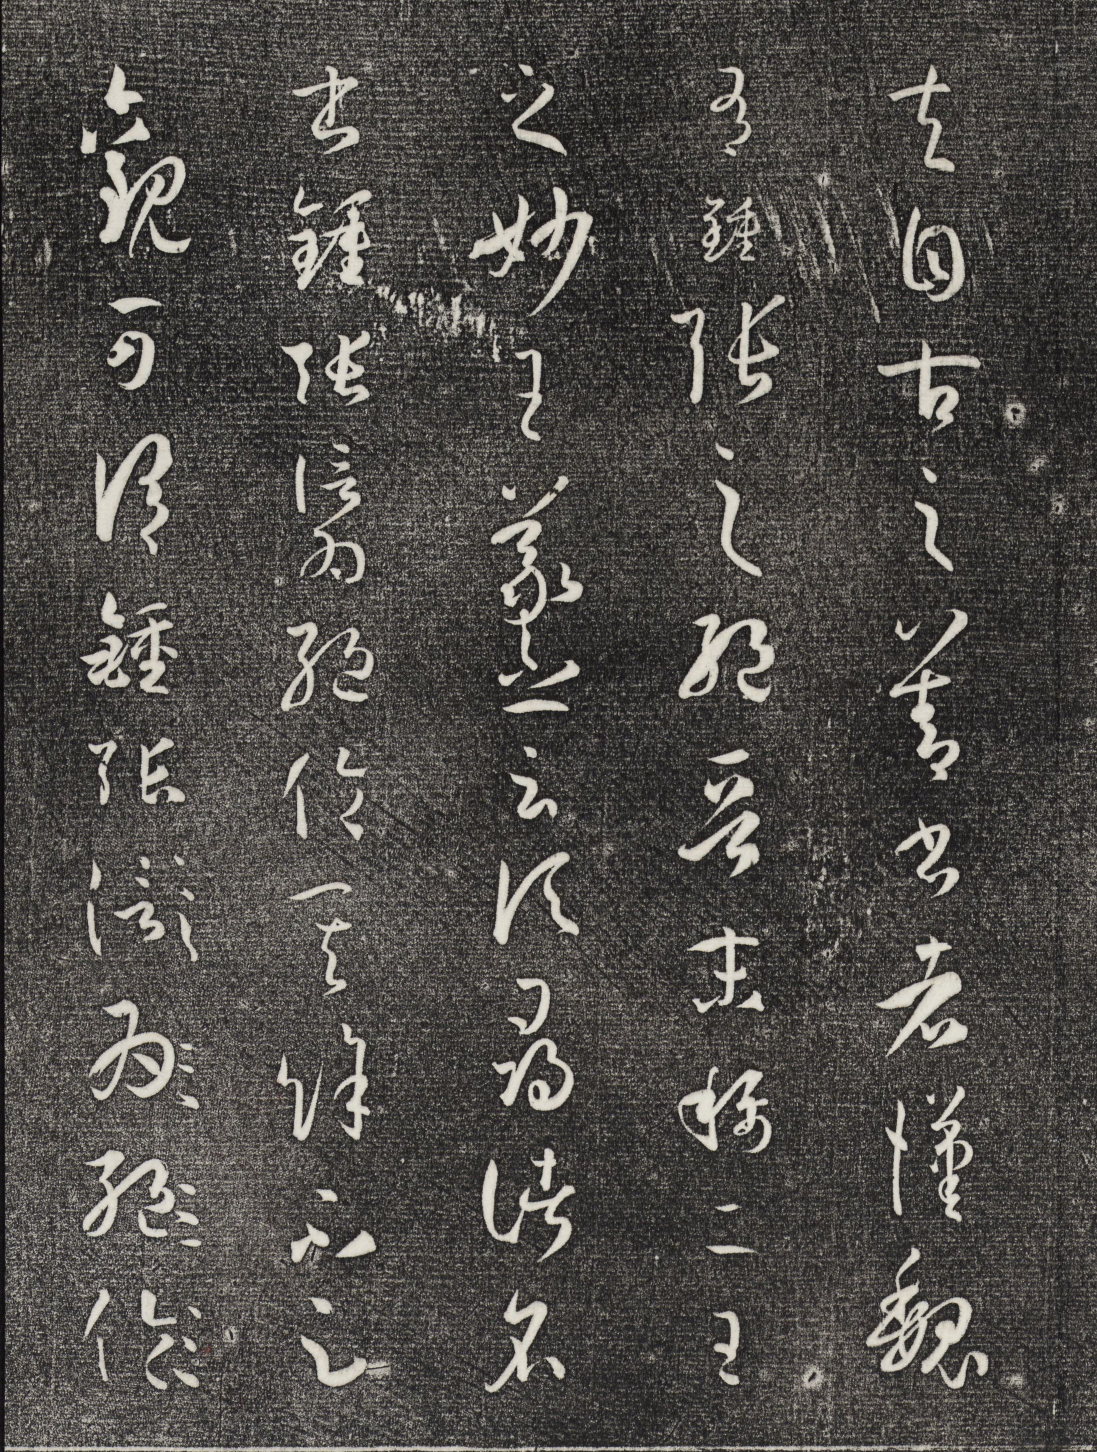 夫自古之善書者漢魏
有鍾張之絕晉末稱二王
之妙王羲之云頃尋諸名
書鍾張信為絕倫其餘不足
觀可謂鍾張信為絕倫